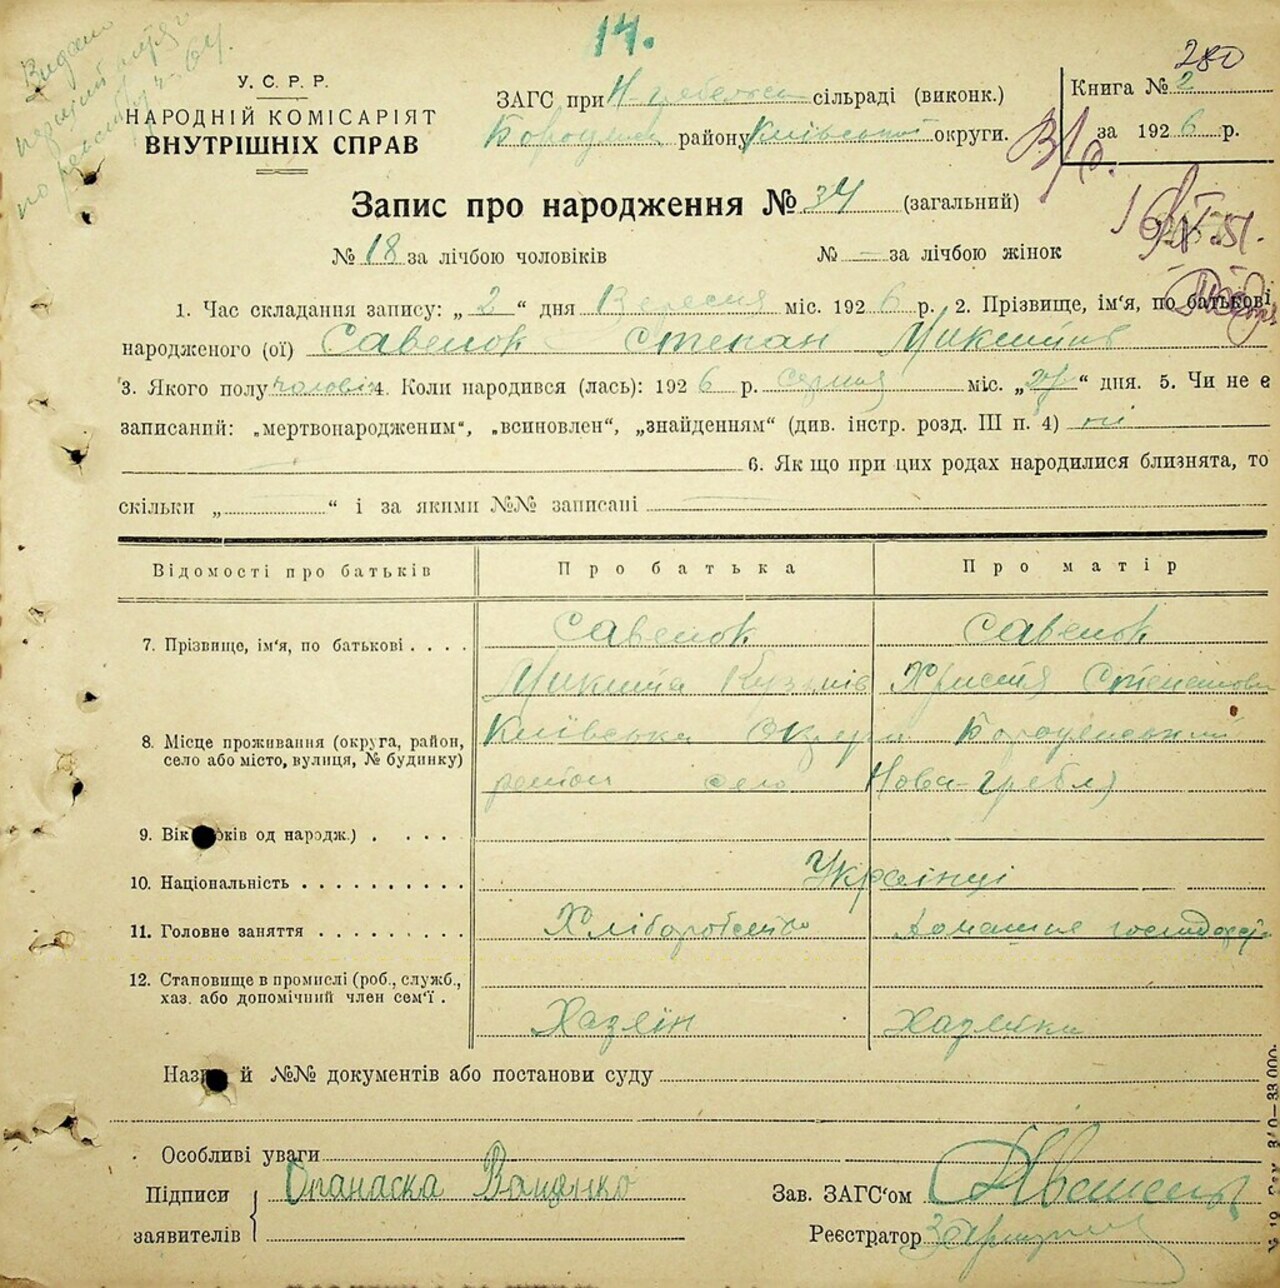 14.
280
Видано
У. С. Р. Р.
НАРОДНІЙ КОМІСАРІЯТ
ВНУТРІШНІХ СПРАВ
ЗАГС при Н-Гребельск сільраді (виконк.)
Бородянск району Київської округи.
Книга № 2
за 1926 р.
Запис про народження № 34 (загальний)
№ 18 за лічбою чоловіків № — за лічбою жінок
1. Час складання запису: „ 2 “ дня Вересня міс. 1926 р. 2. Прізвище, ім'я, по батькові
народженого (ої) Савенок Степан Микитів
3. Якого полу чоловік 4. Коли народився (лась): 1926 р. серпня міс. „ “ дня. 5. Чи не є
записаний: „мертвонародженим“, „всиновлен“, „знайденням“ (див. інстр. розд. III п. 4) ні
6. Як що при цих родах народилися близнята, то
скільки „ “ і за якими №№ записані
Відомості про батьків Про батька Про матір
7. Прізвище, ім'я, по батькові . . . . Савенок Савенок
Микита Кузьмів Христя Степанови
8. Місце проживання (округа, район, село або місто, вулиця, № будинку) Київська Округа Бородянський
район село Нова-Гребля
9. Вік років од народж.) . . . .
10. Національність . . . . . . . . . . Українці
11. Головне заняття . . . . . . . . . Хліборобство домашнє господар
12. Становище в промислі (роб., служб.,
хаз. або допомічний член сем'ї . Хазяїн Хазяйка
Назв й №№ документів або постанови суду
Особливі уваги
Підписи Опанаска Ващенко
заявителів
Зав. ЗАГС'ом
Реєстратор